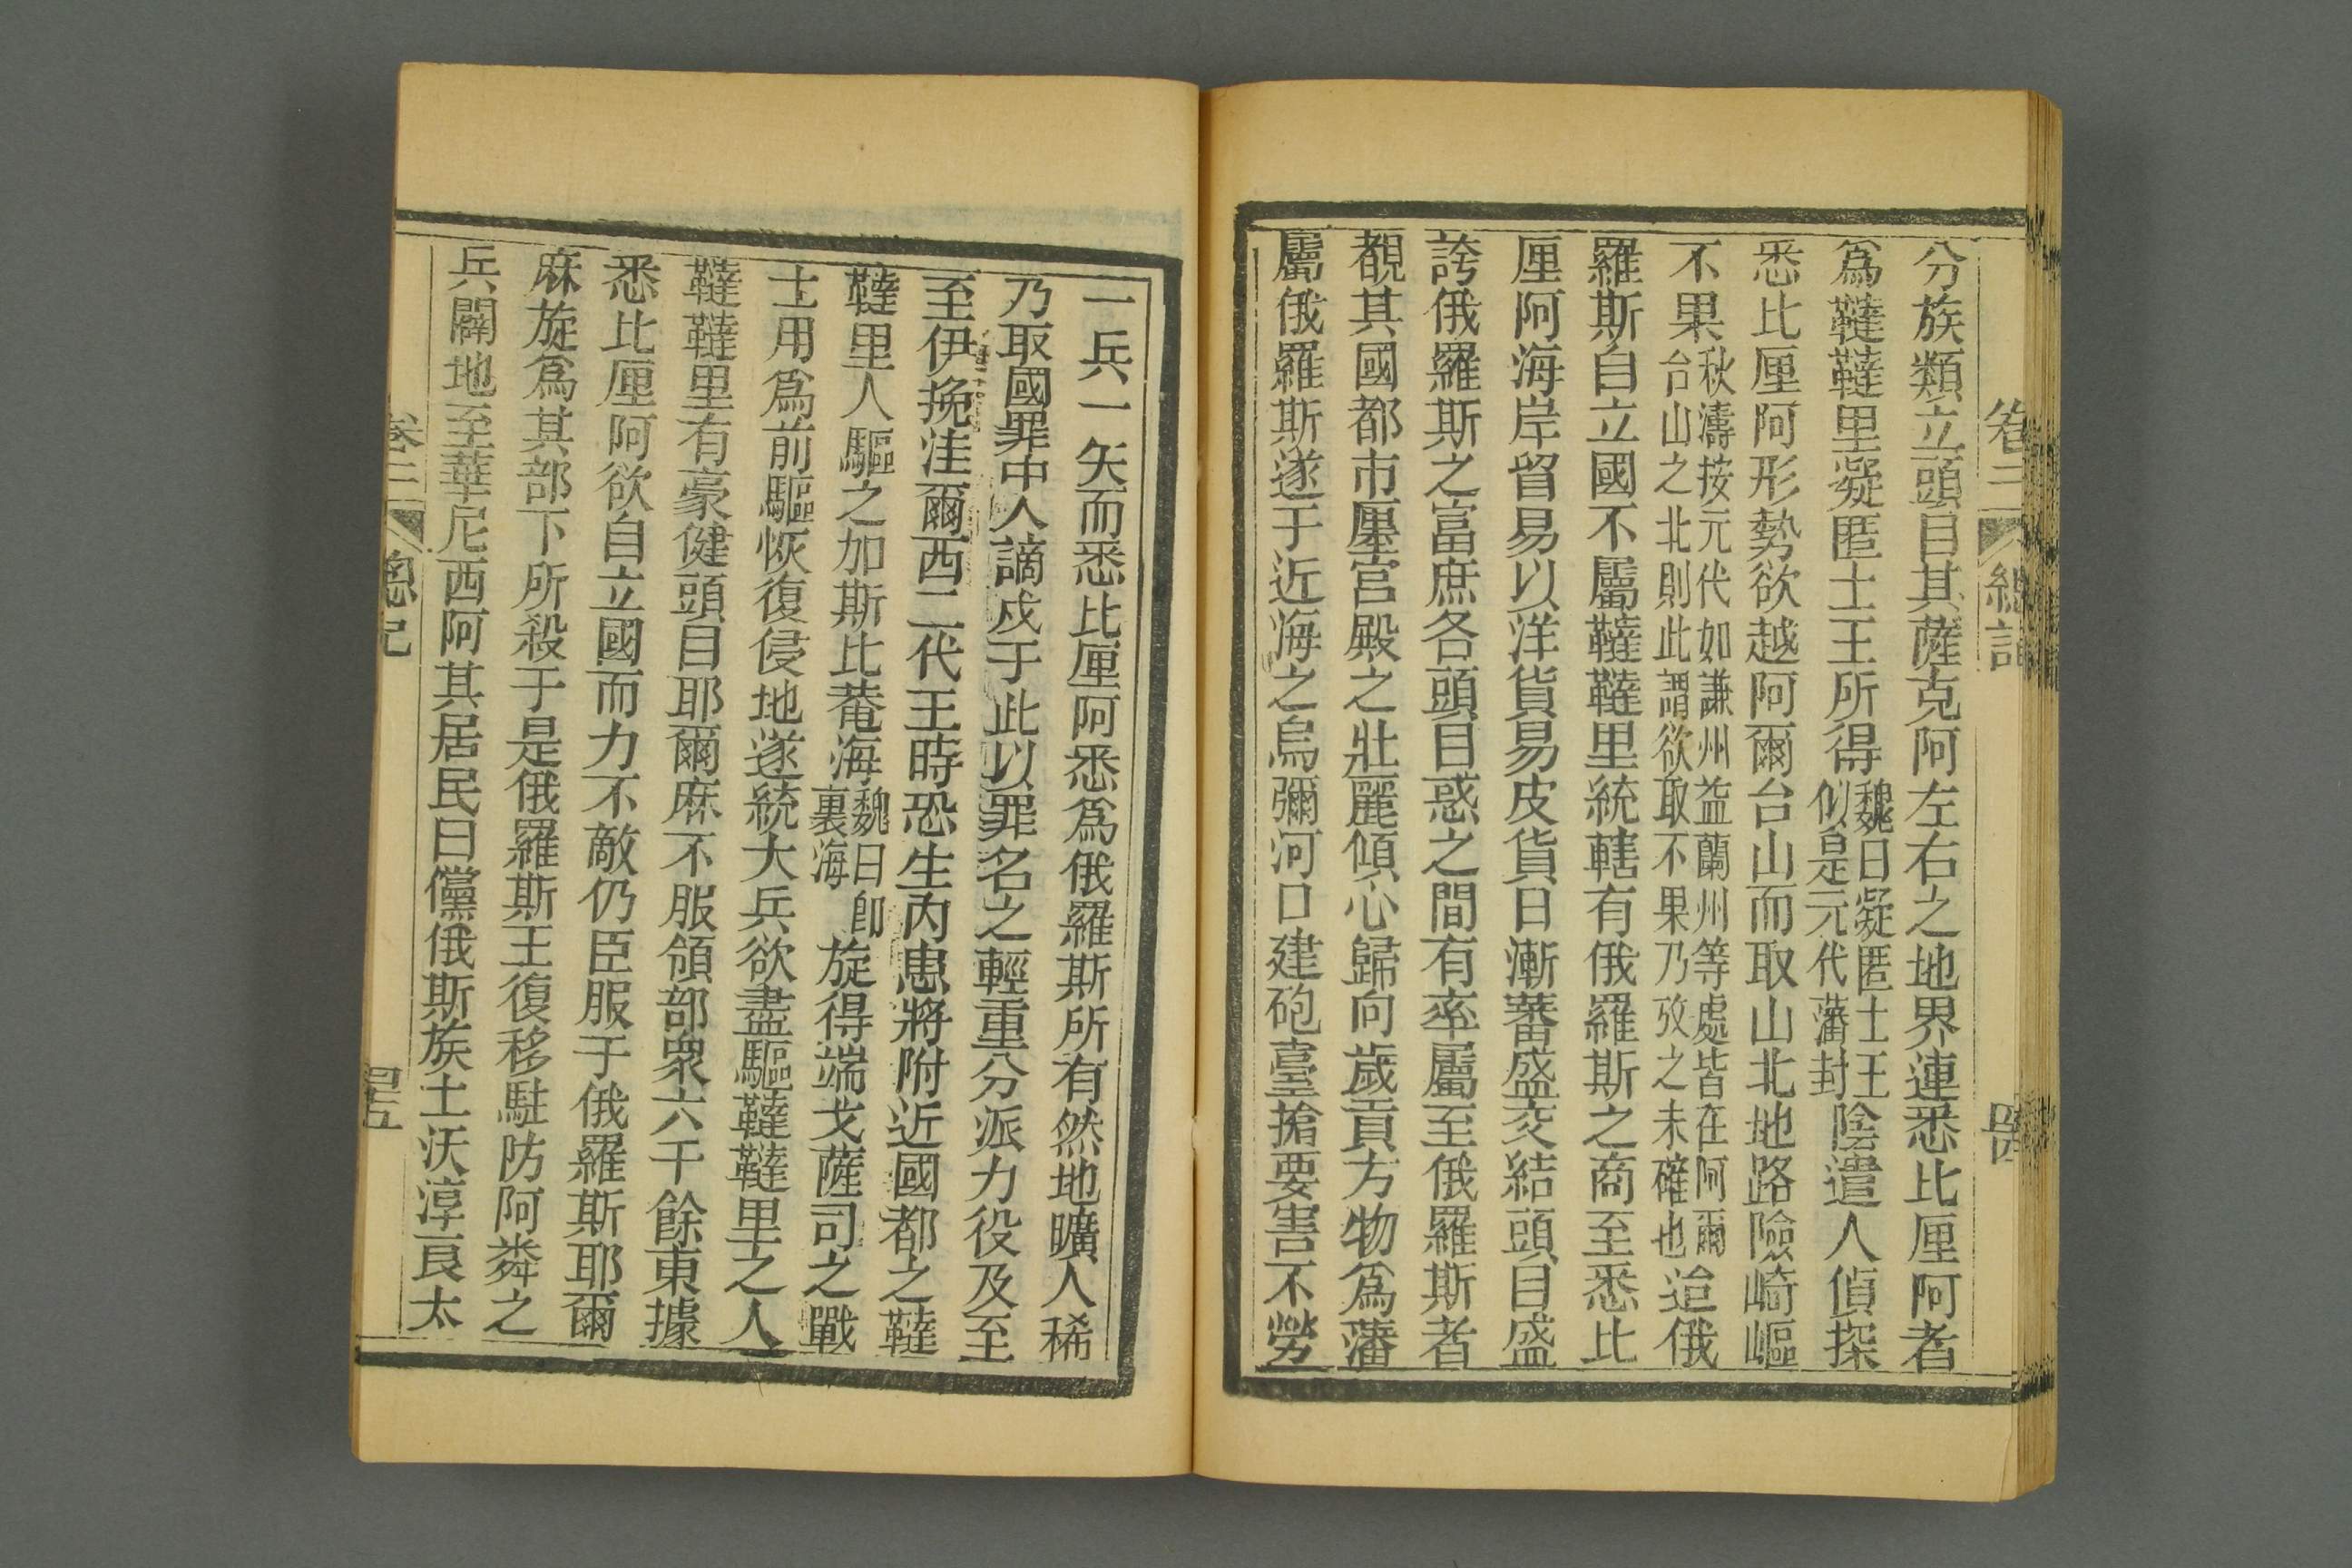 卷三 總記
分族類立頭目其薩克阿左右之地界連悉比厘阿者
爲韃韃里凝匿士王所得魏曰凝匿士王似是元代藩封陰遣人偵探
悉比厘阿形勢欲越阿爾台山而取山北地路險崎嶇
不果秋濤按元代如謙州益蘭州等處皆在阿爾台山之北則此謂欲取不果乃攷之未確也迨俄
羅斯自立國不屬韃韃里統轄有俄羅斯之商至悉比
厘阿海岸貿易以洋貨易皮貨日漸蕃盛交結頭目盛
誇俄羅斯之富庶各頭目惑之間有率屬至俄羅斯者
覩其國都市廛宮殿之壯麗傾心歸向歲貢方物爲藩
屬俄羅斯遂于近海之烏彌河口建砲臺搶要害不勞
一兵一矢而悉比厘阿悉爲俄羅斯所有然地曠人稀
乃取國罪中人謫戍于此以罪名之輕重分派力役及至
至伊挽洼爾西二代王時恐生內患將附近國都之韃
韃里人驅之加斯比菴海魏曰卽裏海旋得端戈薩司之戰
士用爲前驅恢復侵地遂統大兵欲盡驅韃韃里之人
韃韃里有豪健頭目耶爾麻不服領部衆六千餘東據
悉比厘阿欲自立國而力不敵仍臣服于俄羅斯耶爾
麻旋爲其部下所殺于是俄羅斯王復移駐防阿粦之
兵闢地至華尼西阿其居民曰儻俄斯族土沃淳良太
卷三 總記 四五